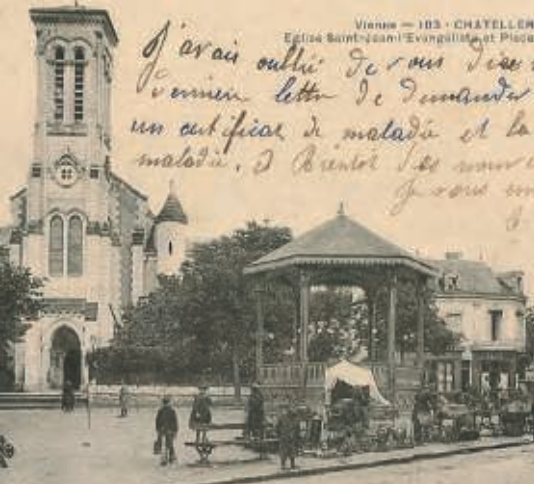 Vienne — 103 - CHATELLER
Eglise Saint-Jean-l'Evangéliste et Place
J'avais oublié de vous dire
dernière lettre de demander
un certificat de maladie et la
maladie. à Bientôt des nouv
Je vous